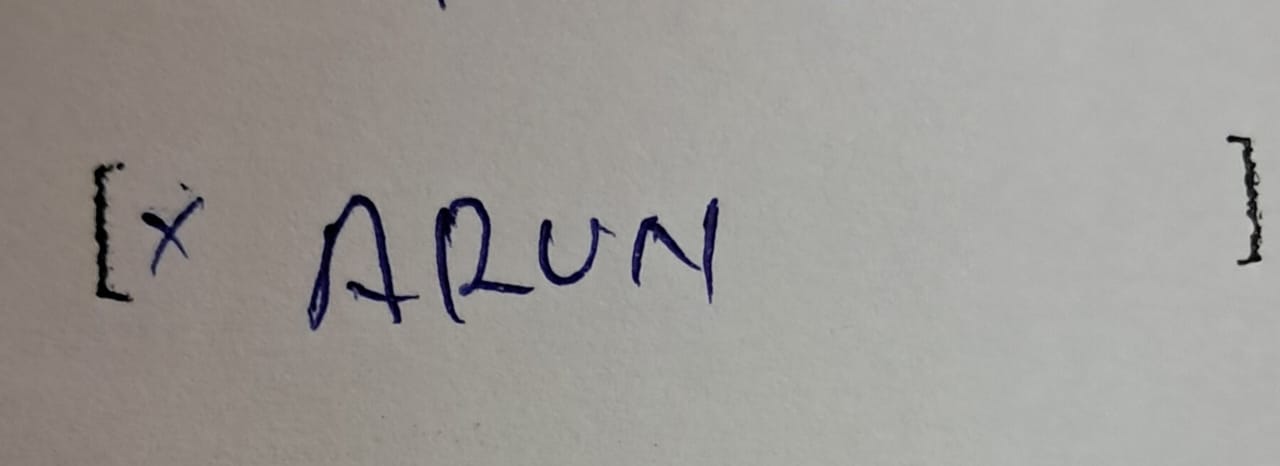 [x ARUN ]